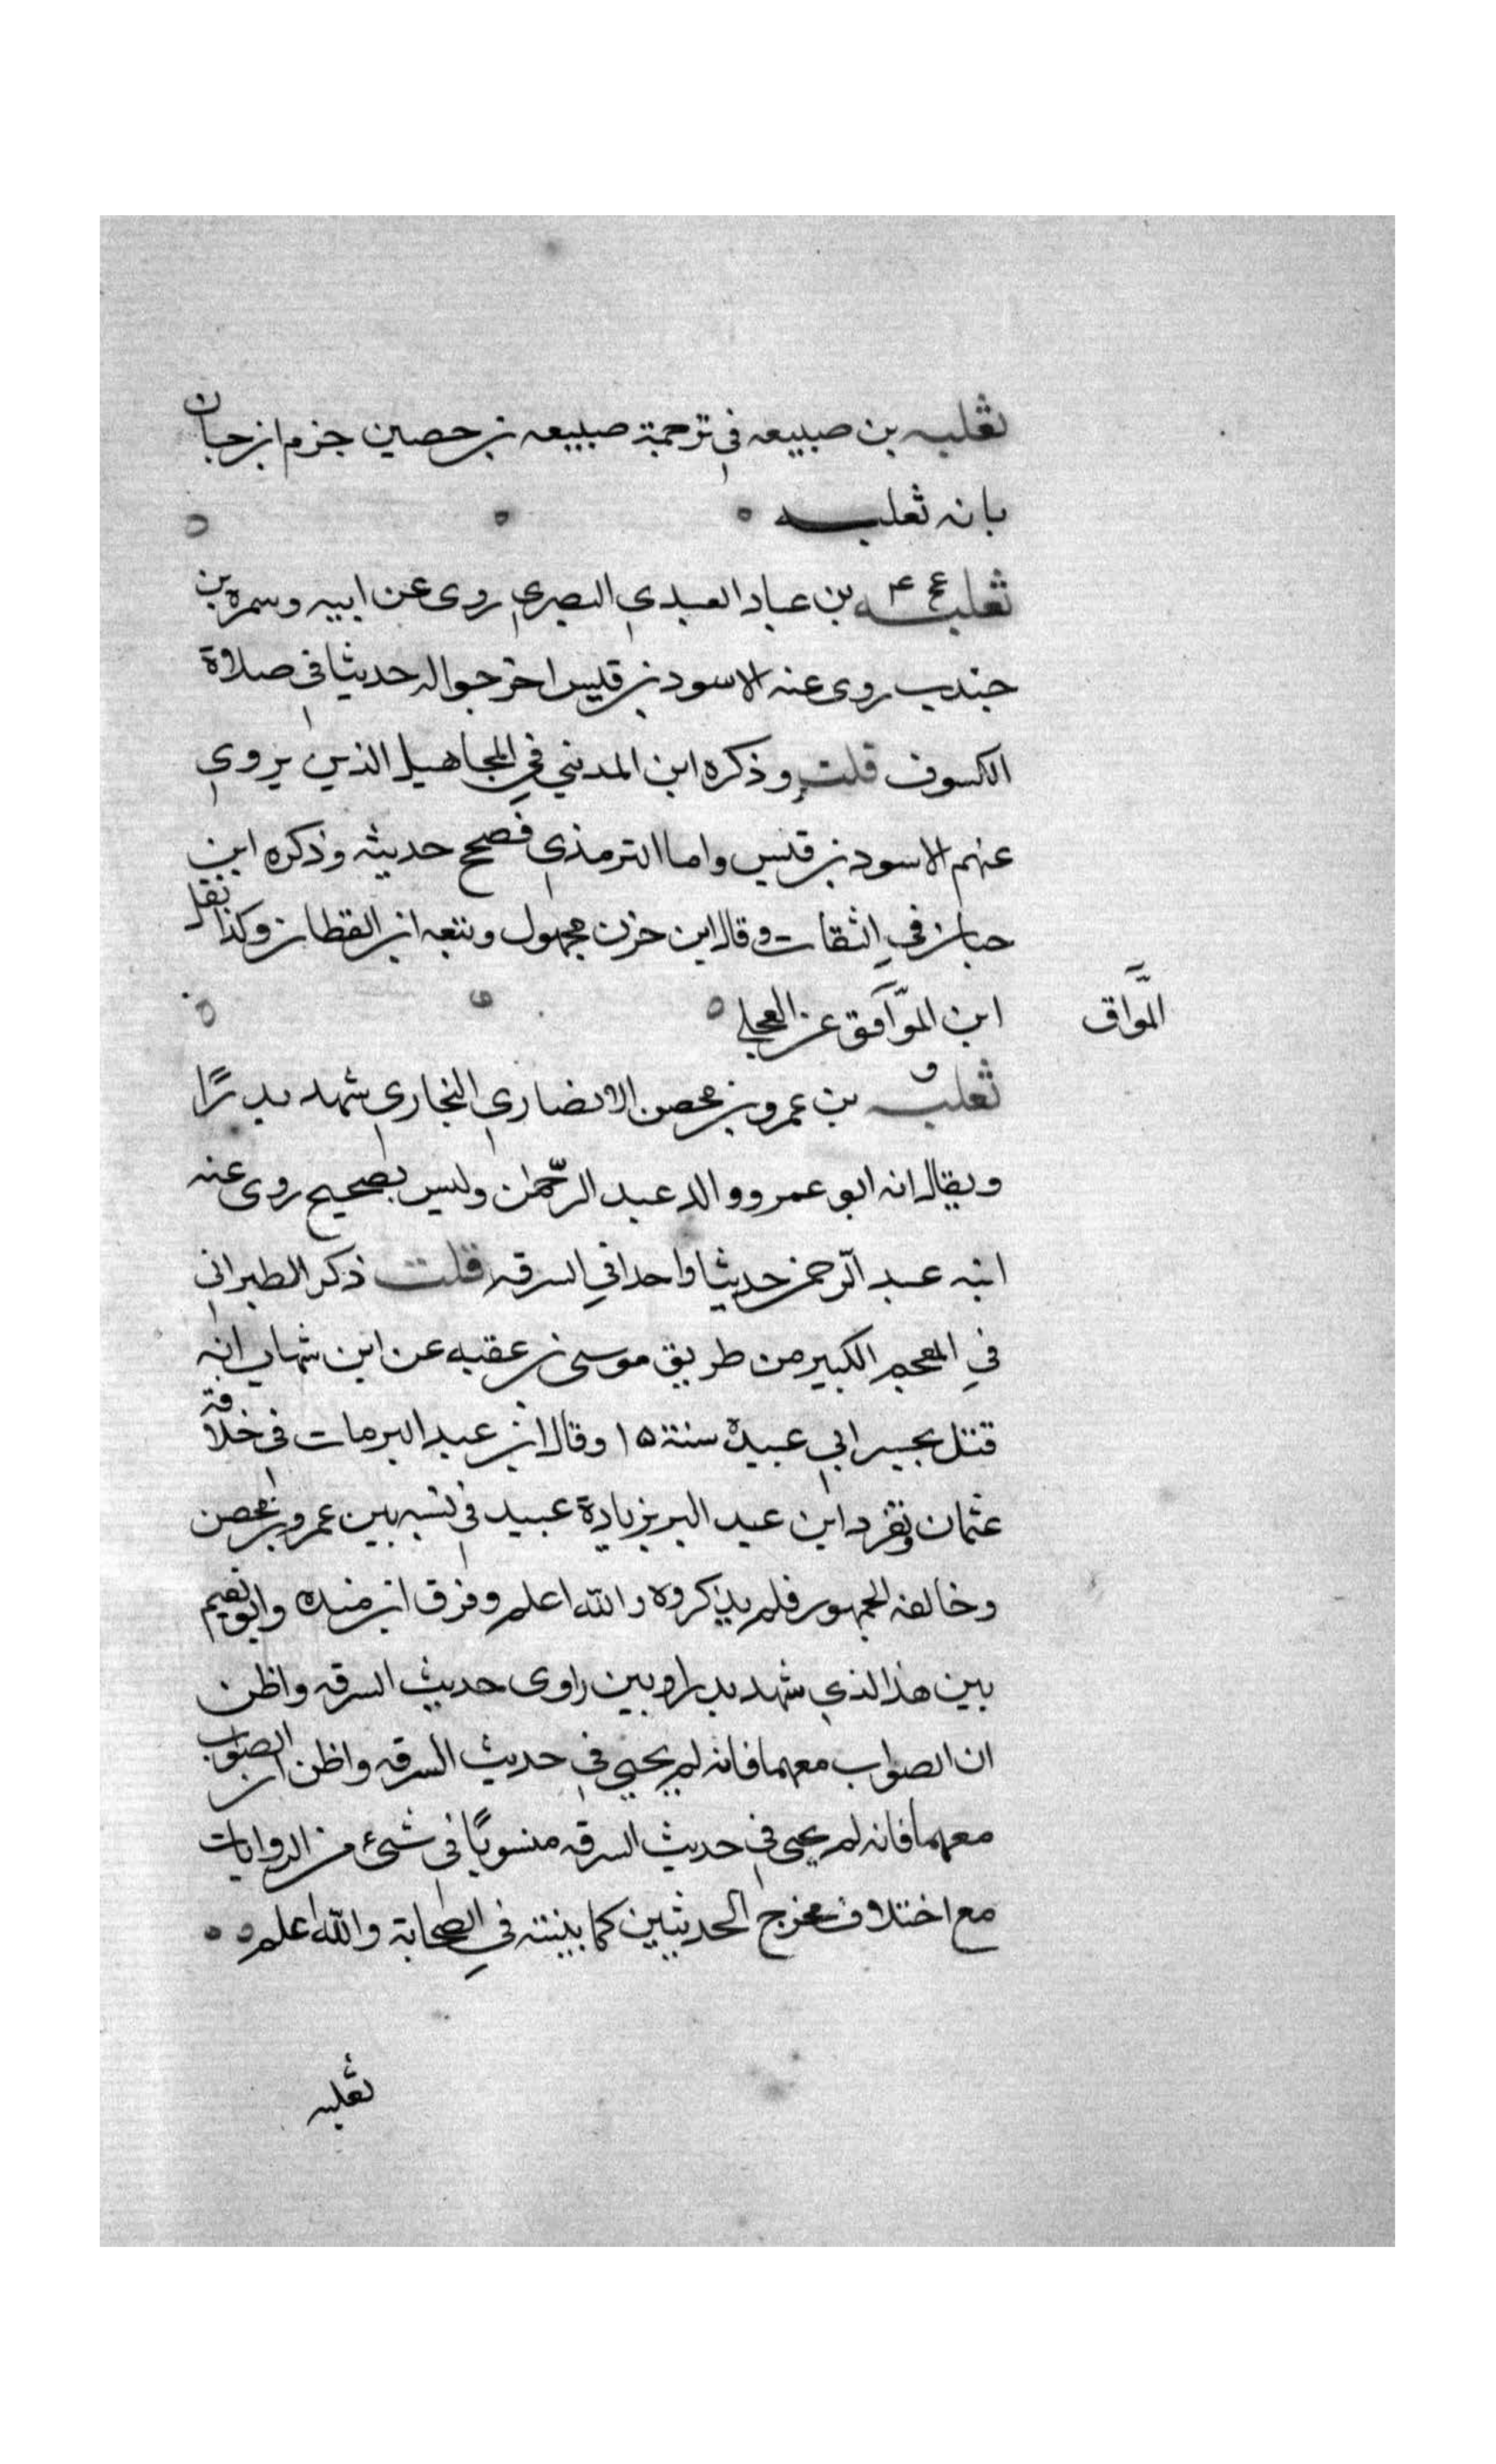 ثعلبه بن صبيعه في ترجمة صبيعه بن حصين جزم ابن حبان
بانه ثعلبه
ثعلبه عخ ٤ بن عباد العبدي البصري روى عن ابيه وسمرة بن
جندب روى عنه الاسود بن قيس اخرجوا له حديثا في صلاة
الكسوف قلت وذكره ابن المديني في المجاهيل الذين يروي
عنهم الاسود بن قيس واما الترمذي فصحح حديثه وذكره ابن
حبان في الثقات وقال ابن حزن مجهول وتبعه ابن القطان وكذا نقل
ابن الموّآفق عن العجلي
المَّواق
ثعلبه ق بن عمرو بن محصن الانصاري النجاري شهد بدرًا
ويقال انه ابو عمرو والد عبد الرّحمٰن وليس بصحيح روى عنه
ابنه عبد الرّحمن حديثا واحدا في السرقه قلت ذكر الطبراني
في المعجم الكبير من طريق موسى بن عقبه عن ابن شهاب انه
قتل بجسر ابي عبيدة سنة ١٥ وقال ابن عبد البر مات في خلافة
عثمان وتفرد ابن عبد البر بزيادة عبيد في نسبه بين عمرو بن محصن
وخالفه الجمهور فلم يذكروه والله اعلم وفرق ابن منده وابو نعيم
بين هذا الذي شهد بدرا وبين راوى حديث السرقه واظن
ان الصواب معهما فانه لم يجيي في حديث السرقه واظن ان الصواب
معهما فانه لم يجى في حديث السرقه منسوبًا في شئ من الروايات
مع اختلاف مخرج الحديثين كما بينته في الصحابة والله اعلم
ثعلبه